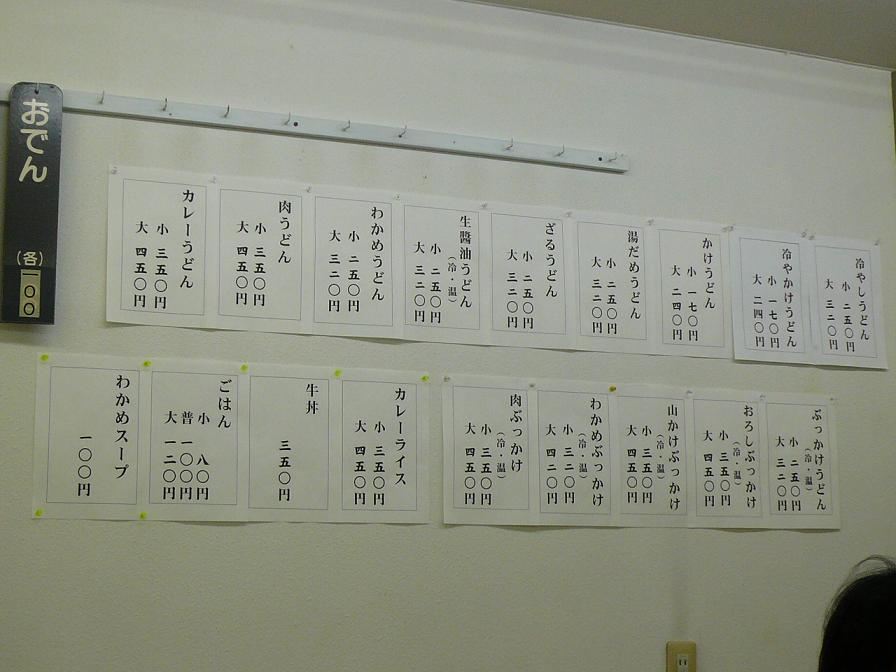 冷やしうどん
小 二五〇円
大 三二〇円
冷やかけうどん
小 一七〇円
大 二四〇円
かけうどん
小 一七〇円
大 二四〇円
湯だめうどん
小 二五〇円
大 三二〇円
ざるうどん
小 二五〇円
大 三二〇円
生醬油うどん
（冷・温）
小 二五〇円
大 三二〇円
わかめうどん
小 二五〇円
大 三二〇円
肉うどん
小 三五〇円
大 四五〇円
カレーうどん
小 三五〇円
大 四五〇円
おでん
（各）
一〇〇
ぶっかけうどん
（冷・温）
小 二五〇円
大 三二〇円
おろしぶっかけ
（冷・温）
小 三五〇円
大 四五〇円
山かけぶっかけ
（冷・温）
小 三五〇円
大 四五〇円
わかめぶっかけ
（冷・温）
小 三二〇円
大 四二〇円
肉ぶっかけ
（冷・温）
小 三五〇円
大 四五〇円
カレーライス
小 三五〇円
大 四五〇円
牛丼
三五〇円
ごはん
小 八〇円
普 一〇〇円
大 一二〇円
わかめスープ
一〇〇円